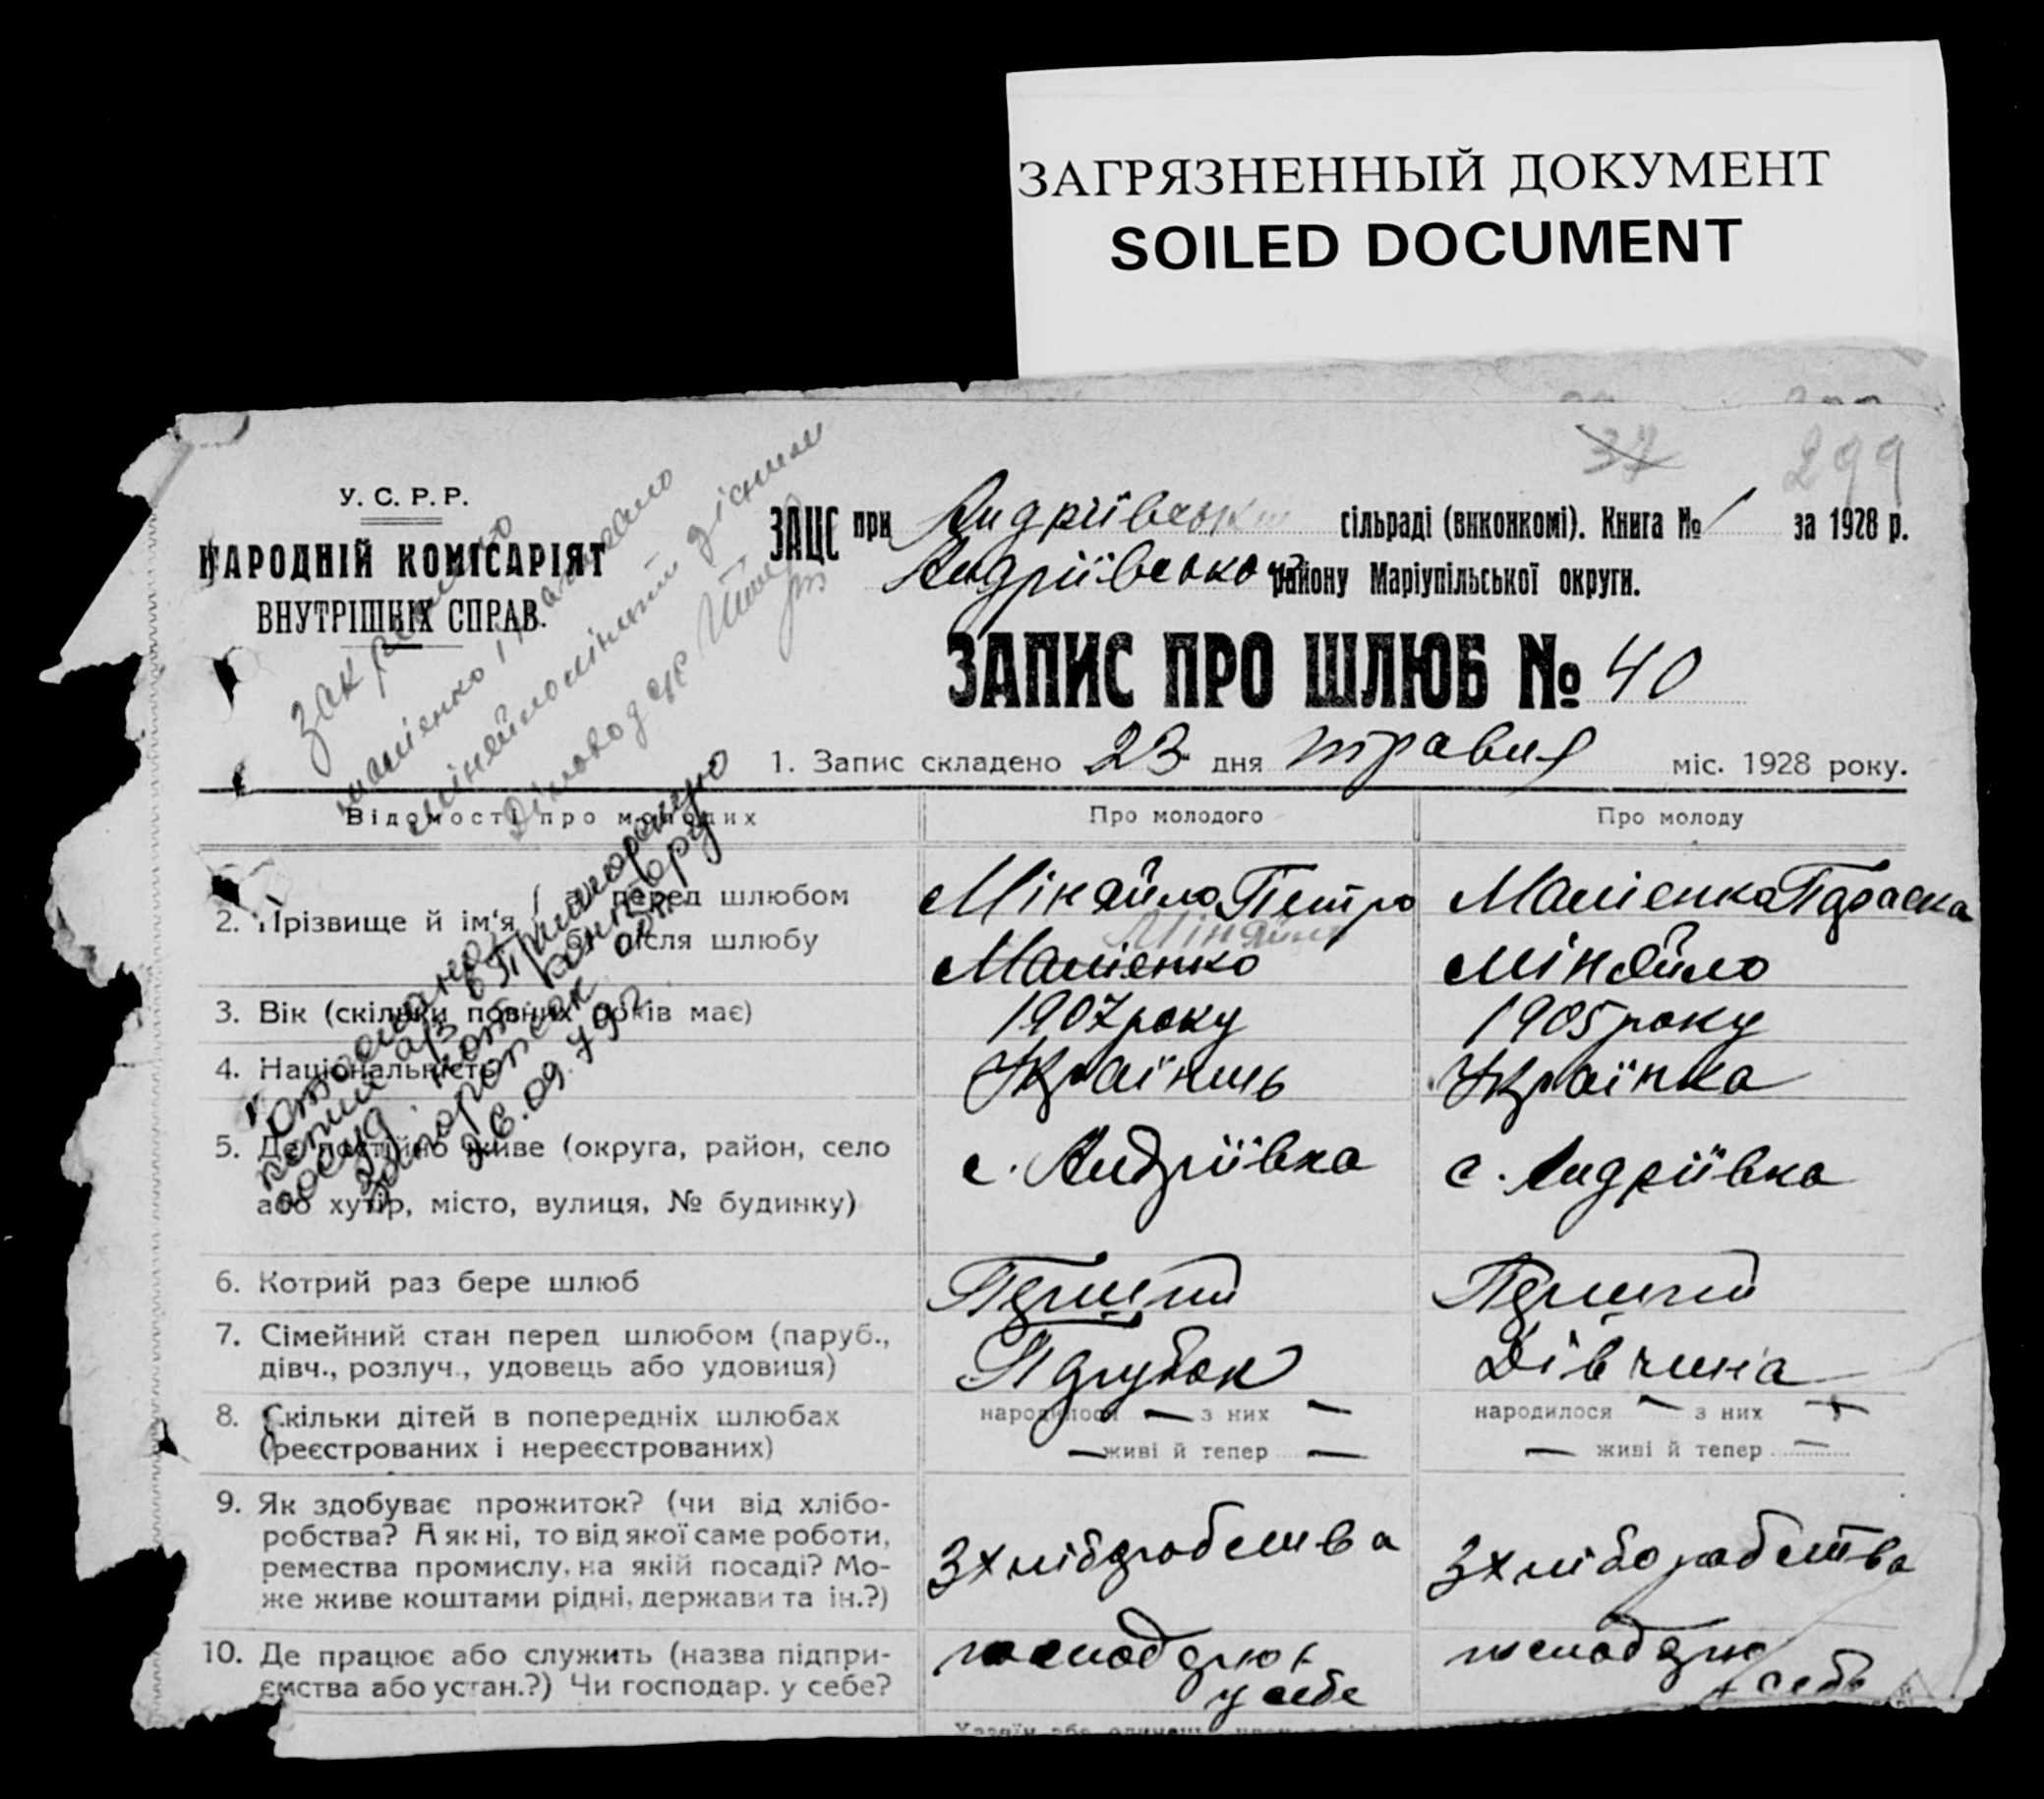 ЗАГРЯЗНЕННЫЙ ДОКУМЕНТ
SOILED DOCUMENT
37
299
У. С. Р. Р.
НАРОДНІЙ КОМІСАРІЯТ
ВНУТРІШНІХ СПРАВ.
ЗАЦС при Андріївській сільраді (виконкомі). Книга № 1 за 1928 р.
Андріївського району Маріупільської округи.
ЗАПИС ПРО ШЛЮБ № 40
1. Запис складено 23 дня травня міс. 1928 року.
Відомості про молодих
Про молодого
Про молоду
2. Прізвище й ім'я
а) перед шлюбом
Мінайло Петро
Машенко Параска
б) після шлюбу
Мінайло
Машенко
Мінайло
3. Вік (скільки повних років має)
1907 року
1905 року
4. Національність
Українець
Українка
5. Де постійно живе (округа, район, село
або хутір, місто, вулиця, № будинку)
с. Андріївка
с. Андріївка
6. Котрий раз бере шлюб
Перший
Перший
7. Сімейний стан перед шлюбом (паруб.,
дівч., розлуч., удовець або удовиця)
Парубок
Дівчина
8. Скільки дітей в попередніх шлюбах
(реєстрованих і нереєстрованих)
народилося — з них —
— живі й тепер —
народилося — з них —
— живі й тепер —
9. Як здобуває прожиток? (чи від хлібо-
робства? А як ні, то від якої саме роботи,
ремества промислу, на якій посаді? Мо-
же живе коштами рідні, держави та ін.?)
З хліборобства
З хліборобства
10. Де працює або служить (назва підпри-
ємства або устан.?) Чи господар. у себе?
господарює
у себе
господарює
у себе
Отослано
копия а/з в Приморскую
посуд. нот. контору
Запорожск. обл.
26.09.79 г.